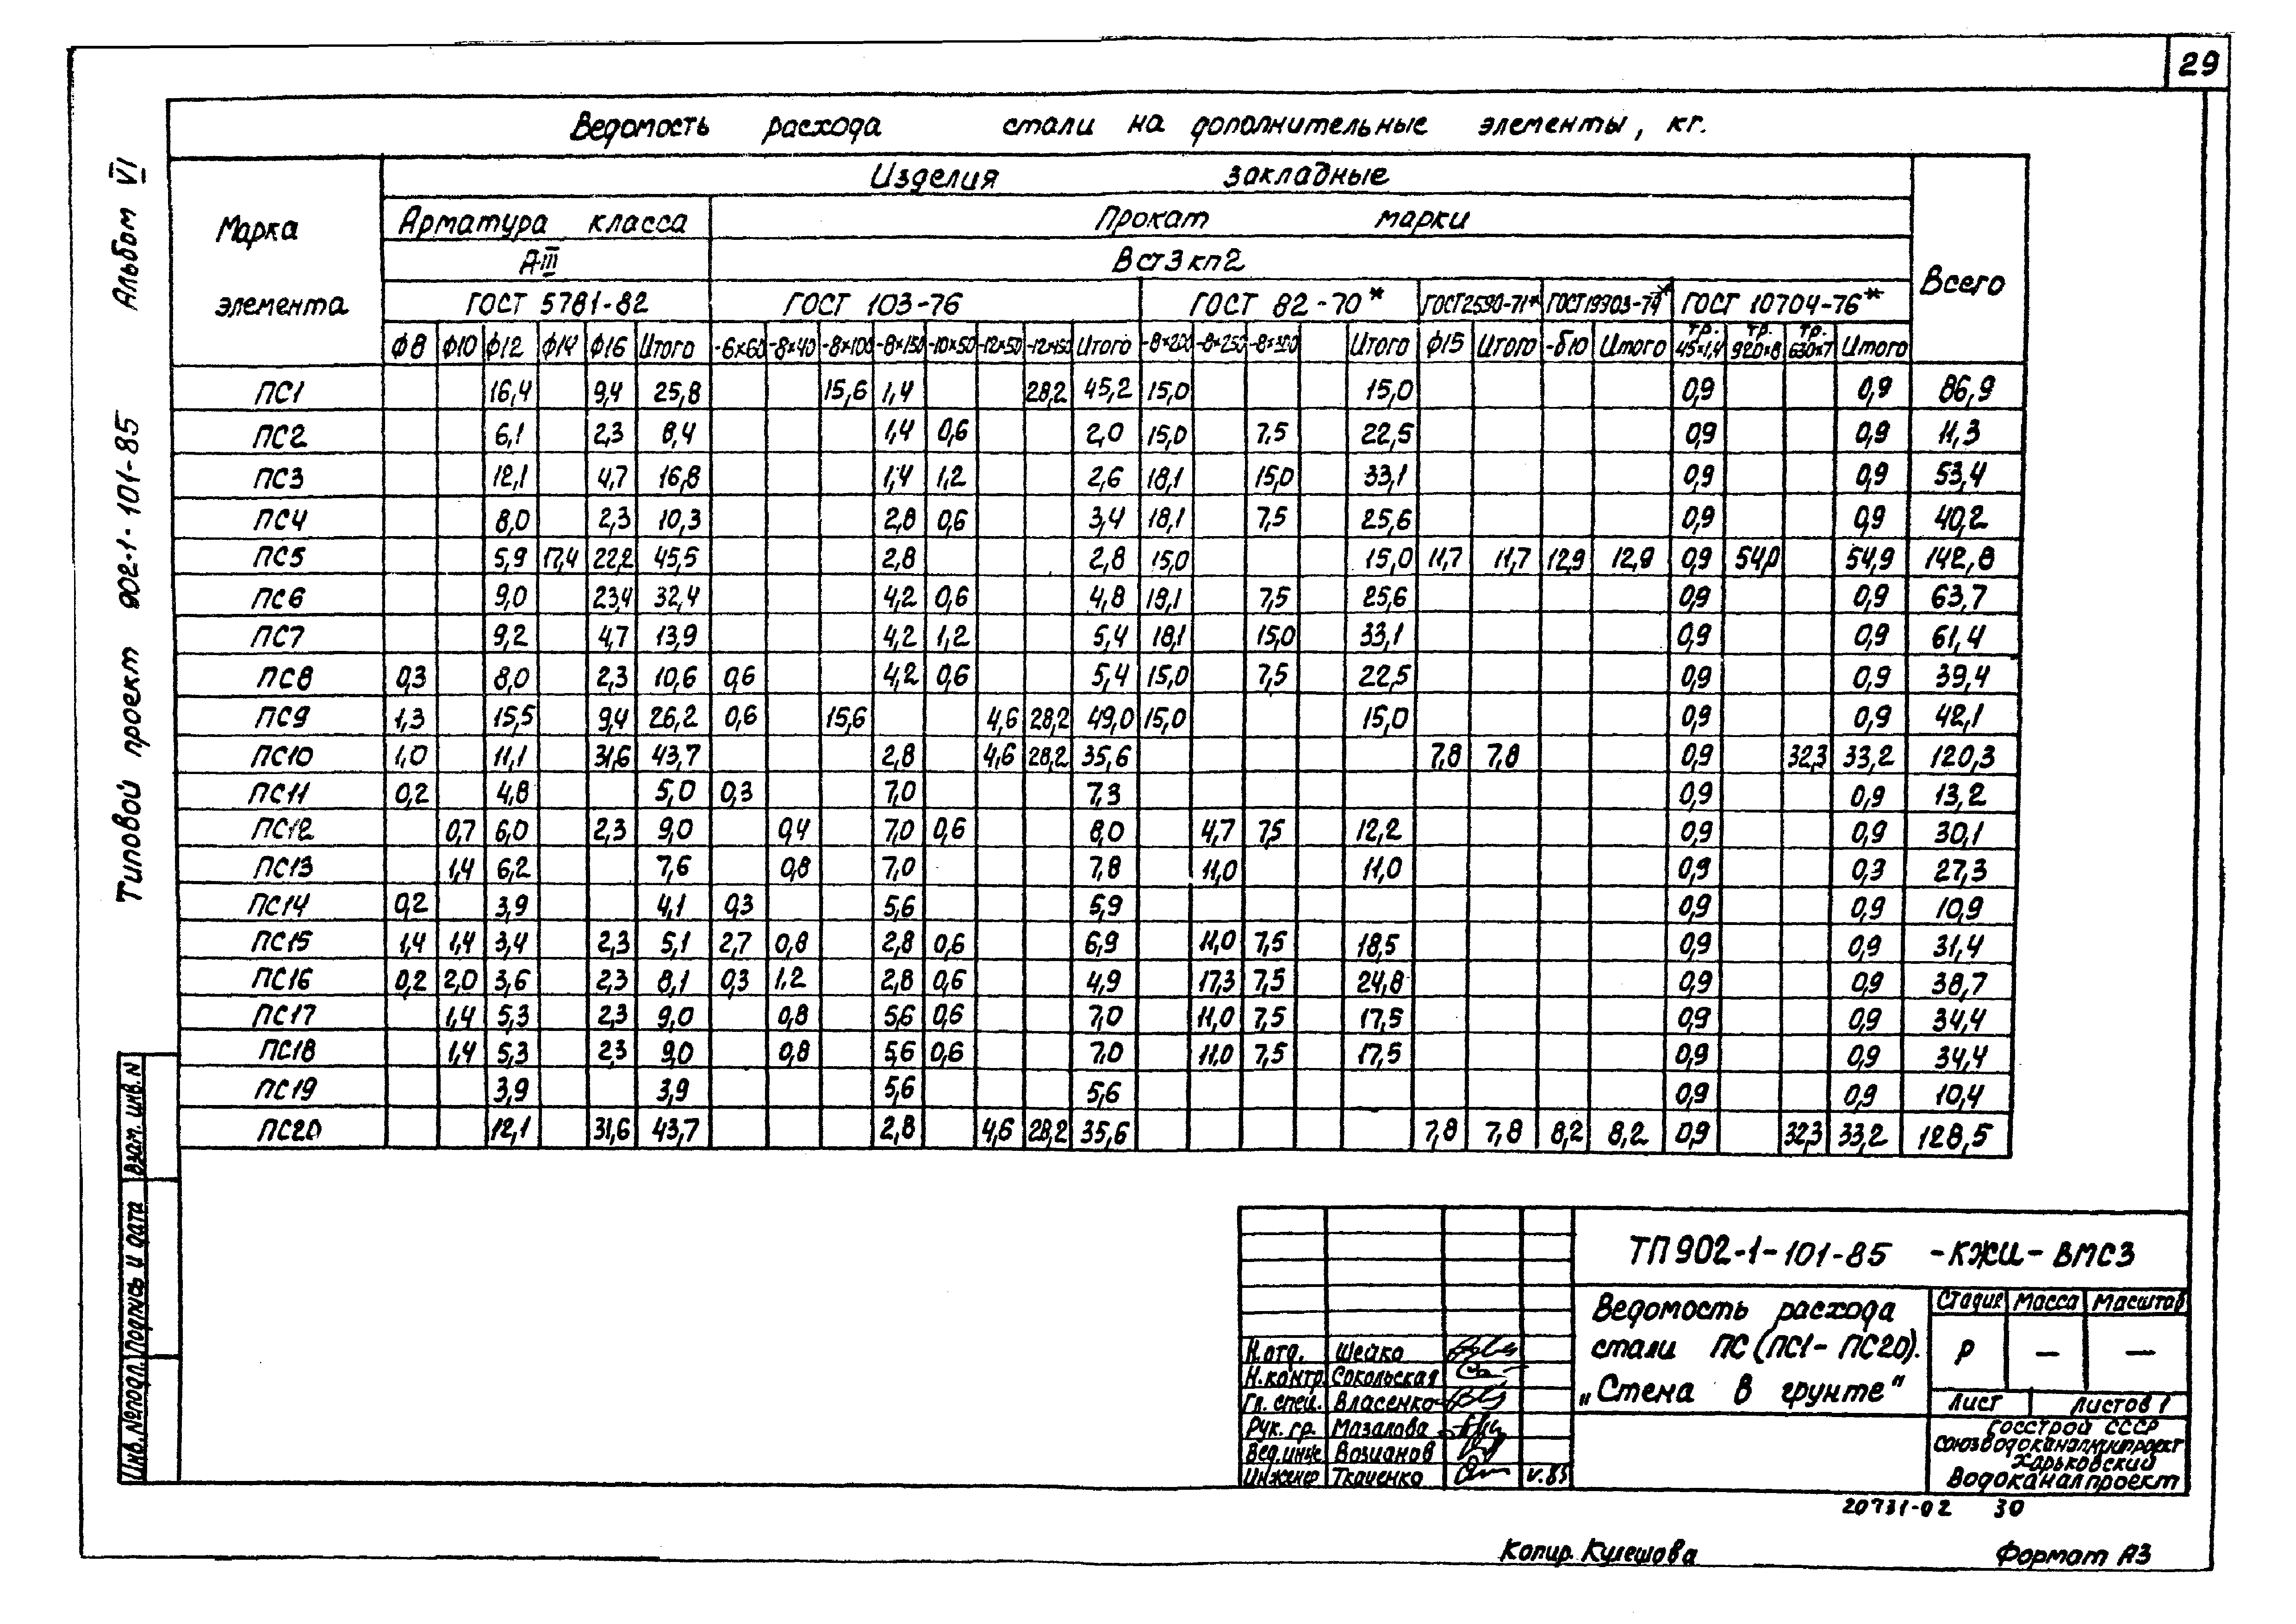 29
Ведомость расхода стали на дополнительные элементы, кг.
Марка элемента
Изделия закладные
Всего
Арматура класса
Прокат марки
А-III
Вст3кп2
ГОСТ 5781-82
ГОСТ 103-76
ГОСТ 82-70*
ГОСТ2590-71*
ГОСТ19903-74*
ГОСТ 10704-76*
Ф8 Ф10 Ф12 Ф14 Ф16 Итого -6×60 -8×40 -8×100 -8×150 -10×50 -12×50 -12×150 Итого -8×200 -8×250 -8×300 Итого Ф15 Итого -б10 Итого тр. 45×1,4 тр. 920×8 тр. 630×7 Итого
ПС1 16,4 9,4 25,8 15,6 1,4 28,2 45,2 15,0 15,0 0,9 0,9 86,9
ПС2 6,1 2,3 8,4 1,4 0,6 2,0 15,0 7,5 22,5 0,9 0,9 11,3
ПС3 12,1 4,7 16,8 1,4 1,2 2,6 18,1 15,0 33,1 0,9 0,9 53,4
ПС4 8,0 2,3 10,3 2,8 0,6 3,4 18,1 7,5 25,6 0,9 0,9 40,2
ПС5 5,9 17,4 22,2 45,5 2,8 2,8 15,0 15,0 11,7 11,7 12,9 12,9 0,9 54,0 54,9 142,8
ПС6 9,0 23,4 32,4 4,2 0,6 4,8 18,1 7,5 25,6 0,9 0,9 63,7
ПС7 9,2 4,7 13,9 4,2 1,2 5,4 18,1 15,0 33,1 0,9 0,9 61,4
ПС8 0,3 8,0 2,3 10,6 0,6 4,2 0,6 5,4 15,0 7,5 22,5 0,9 0,9 39,4
ПС9 1,3 15,5 9,4 26,2 0,6 15,6 4,6 28,2 49,0 15,0 15,0 0,9 0,9 42,1
ПС10 1,0 11,1 31,6 43,7 2,8 4,6 28,2 35,6 7,8 7,8 0,9 32,3 33,2 120,3
ПС11 0,2 4,8 5,0 0,3 7,0 7,3 0,9 0,9 13,2
ПС12 0,7 6,0 2,3 9,0 0,4 7,0 0,6 8,0 4,7 7,5 12,2 0,9 0,9 30,1
ПС13 1,4 6,2 7,6 0,8 7,0 7,8 11,0 11,0 0,9 0,3 27,3
ПС14 0,2 3,9 4,1 0,3 5,6 5,9 0,9 0,9 10,9
ПС15 1,4 1,4 3,4 2,3 5,1 2,7 0,8 2,8 0,6 6,9 11,0 7,5 18,5 0,9 0,9 31,4
ПС16 0,2 2,0 3,6 2,3 8,1 0,3 1,2 2,8 0,6 4,9 17,3 7,5 24,8 0,9 0,9 38,7
ПС17 1,4 5,3 2,3 9,0 0,8 5,6 0,6 7,0 11,0 7,5 17,5 0,9 0,9 34,4
ПС18 1,4 5,3 2,3 9,0 0,8 5,6 0,6 7,0 11,0 7,5 17,5 0,9 0,9 34,4
ПС19 3,9 3,9 5,6 5,6 0,9 0,9 10,4
ПС20 12,1 31,6 43,7 2,8 4,6 28,2 35,6 7,8 7,8 8,2 8,2 0,9 32,3 33,2 128,5
Типовой проект 902-1-101-85 Альбом VI
Инв.№подл. Подпись и дата Взам. инв. N
ТП902-1-101-85 -КЖИ-ВМС3
Ведомость расхода
стали ПС (ПС1-ПС20).
„Стена в грунте"
Стадия Масса Масштаб
Р — —
Лист Листов 1
Госстрой СССР
Союзводоканалниипроект
Харьковский
Водоканалпроект
Н.отд. Шейко
Н.контр. Сокольская
Гл. спец. Власенко
Рук. гр. Мазалова
Вед.инж Возианов
Инженер Ткаченко V.85
20731-02 30
Копир. Кулешова
Формат А3